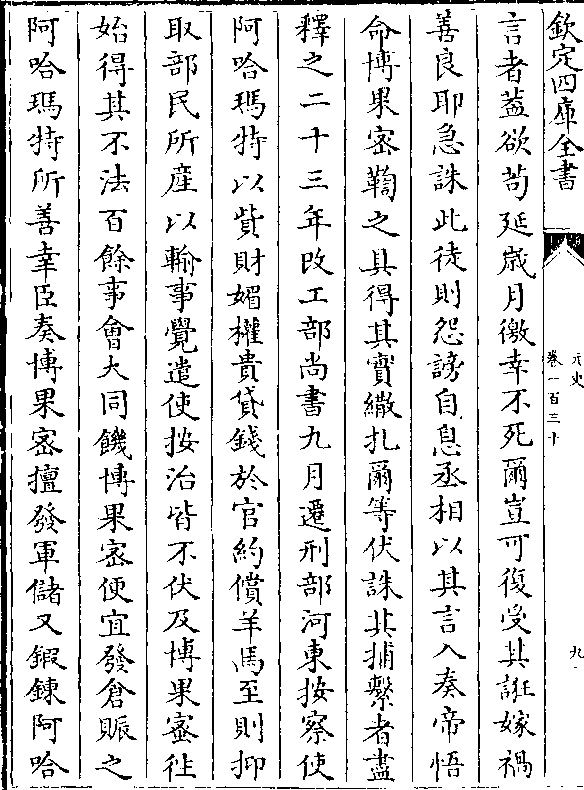 欽定四庫全書
元史
卷一百三十
九
言者蓋欲茍延歲月徼幸不死爾豈可復受其誑嫁禍
善良耶急誅此徒則怨謗自息丞相以其言入奏帝悟
命博果宻鞫之具得其實繖扎爾等伏誅其捕繫者盡
釋之二十三年改工部尚書九月遷刑部河東按察使
阿哈瑪特以貲財媚權貴貸錢於官約償羊馬至則抑
取部民所産以輸事覺遣使按治皆不伏及博果宻往
始得其不法百餘事會大同饑博果宻便宜發倉賑之
阿哈瑪特所善幸臣奏博果宻擅發軍儲又鍜鍊阿哈